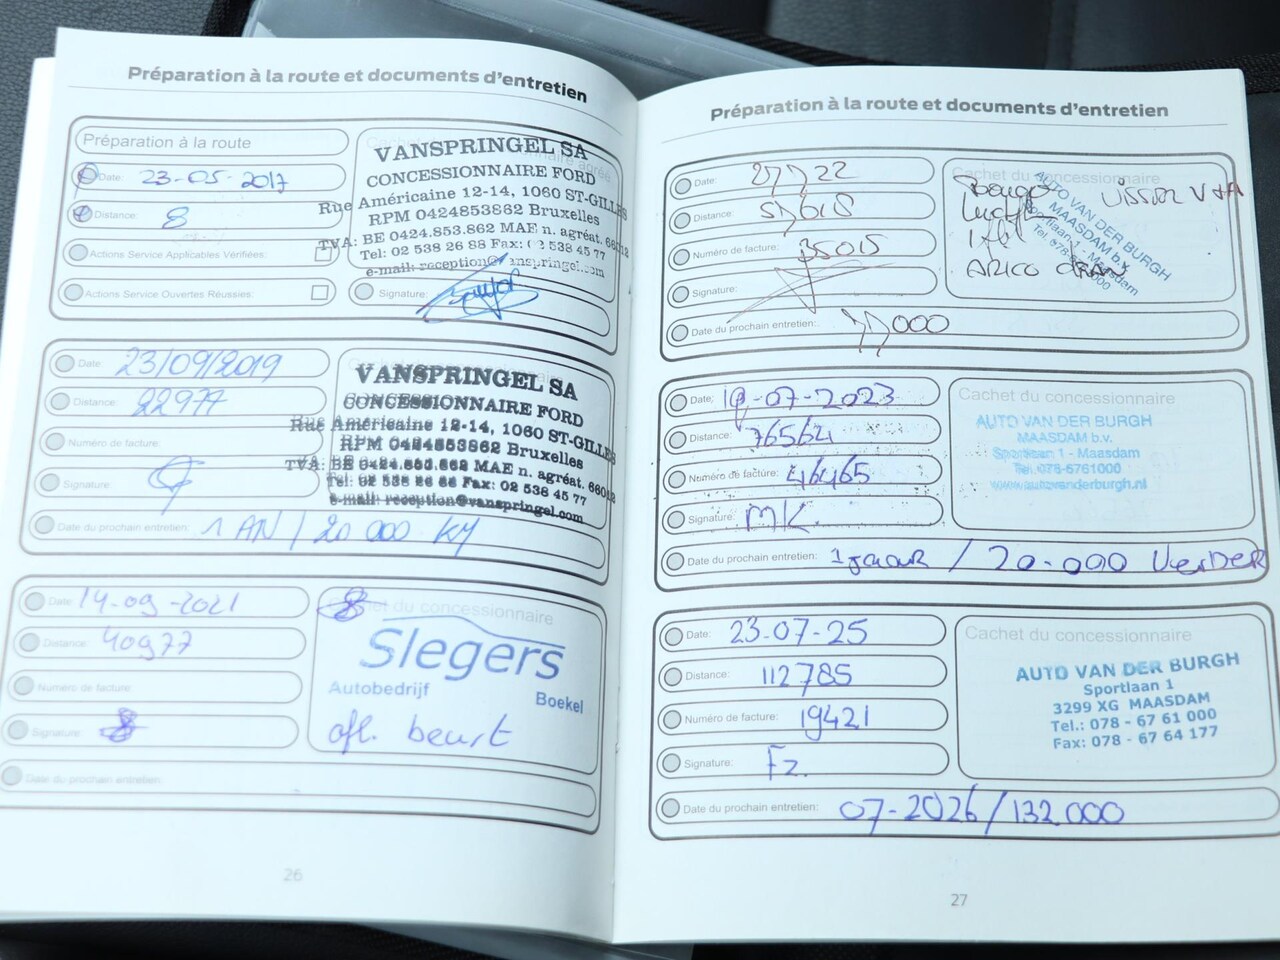 Préparation à la route et documents d'entretien
Préparation à la route
Date: 23-05-2017
Distance: 8
Actions Service Applicables Vérifiées:
Actions Service Ouvertes Réussies:
VANSPRINGEL SA
CONCESSIONNAIRE FORD
Rue Américaine 12-14, 1060 ST-GILLES
RPM 0424853862 Bruxelles
TVA: BE 0424.853.862 MAE n. agréat. 66012
Tel: 02 538 26 88 Fax: 02 538 45 77
e-mail: reception@vanspringel.com
Signature:
Date: 23/09/2019
Distance: 22977
Numéro de facture:
Signature:
Date du prochain entretien: 1 AN / 20 000 KM
VANSPRINGEL SA
CONCESSIONNAIRE FORD
Rue Américaine 12-14, 1060 ST-GILLES
RPM 0424853862 Bruxelles
TVA: BE 0424.853.862 MAE n. agréat. 66012
Tel: 02 538 26 88 Fax: 02 538 45 77
e-mail: reception@vanspringel.com
Date: 14-09-2021
Distance: 40977
Numéro de facture:
Signature:
Date du prochain entretien:
Cachet du concessionnaire
Slegers
Autobedrijf
Boekel
afl. beurt
26
Préparation à la route et documents d'entretien
Date:
Distance:
Numéro de facture: 35015
Signature:
Date du prochain entretien: 77000
Cachet du concessionnaire
AUTO VAN DER BURGH
MAASDAM b.v.
Date: 19-07-2023
Distance: 76564
Numéro de facture: 46465
Signature: MK
Date du prochain entretien: 1 jaar / 20.000 VERDER
Cachet du concessionnaire
AUTO VAN DER BURGH
MAASDAM b.v.
Sportlaan 1 - Maasdam
Tel. 078-6761000
www.autovanderburgh.nl
Date: 23-07-25
Distance: 112785
Numéro de facture: 19421
Signature: Fz.
Date du prochain entretien: 07-2026/132.000
Cachet du concessionnaire
AUTO VAN DER BURGH
Sportlaan 1
3299 XG MAASDAM
Tel.: 078 - 67 61 000
Fax: 078 - 67 64 177
27